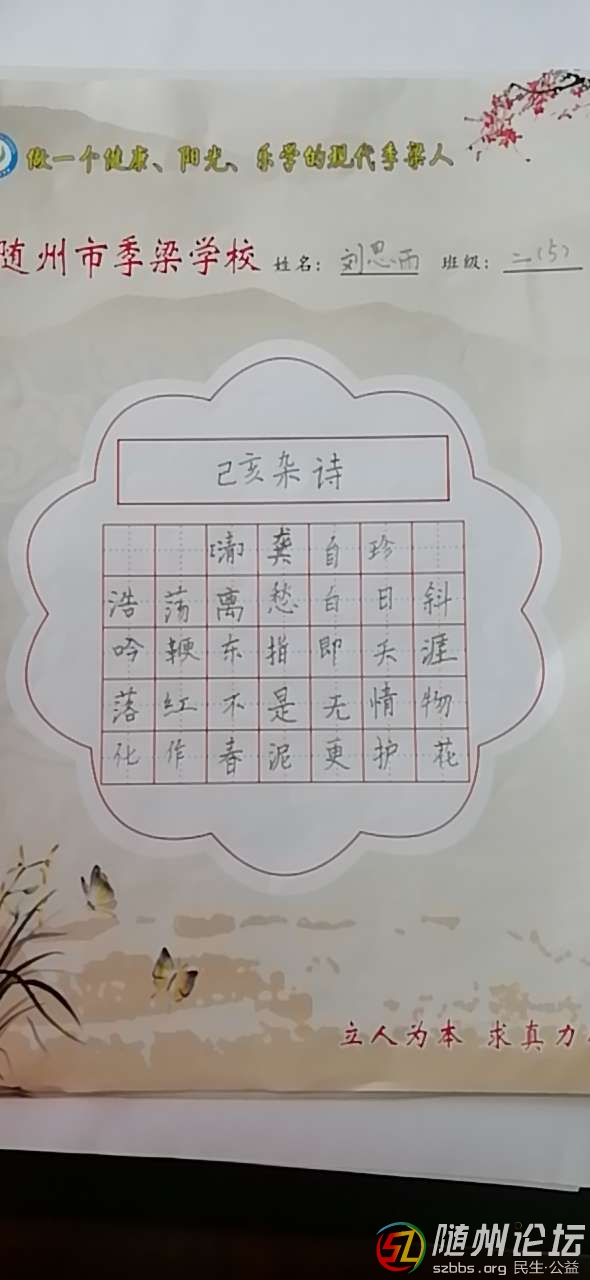 做一个健康、阳光、乐学的现代季梁人
随州市季梁学校 姓名：刘思雨 班级：二(5)
己亥杂诗
[清]龚自珍
浩荡离愁白日斜
吟鞭东指即天涯
落红不是无情物
化作春泥更护花
立人为本 求真力
随州论坛
szbbs.org 民生·公益